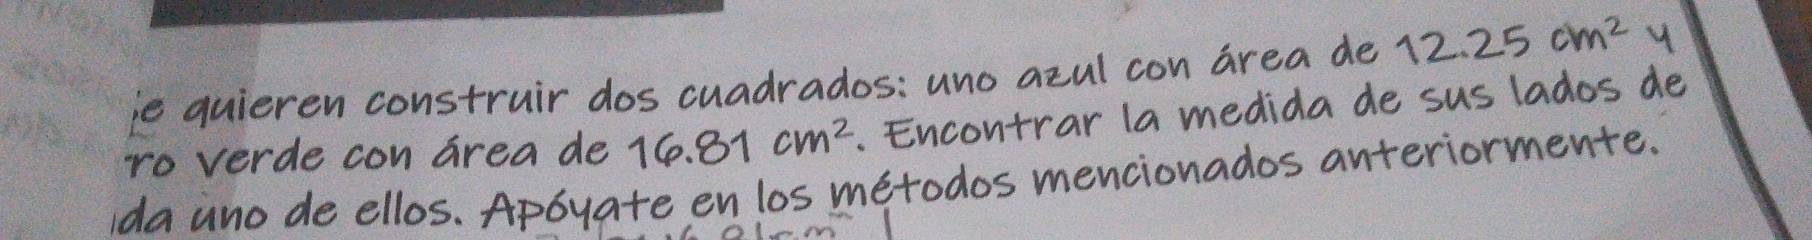 se quieren construir dos cuadrados: uno azul con área de 12.25 cm² y
ro verde con área de 16.81 cm². Encontrar la medida de sus lados de
da uno de ellos. Apóyate en los métodos mencionados anteriormente.